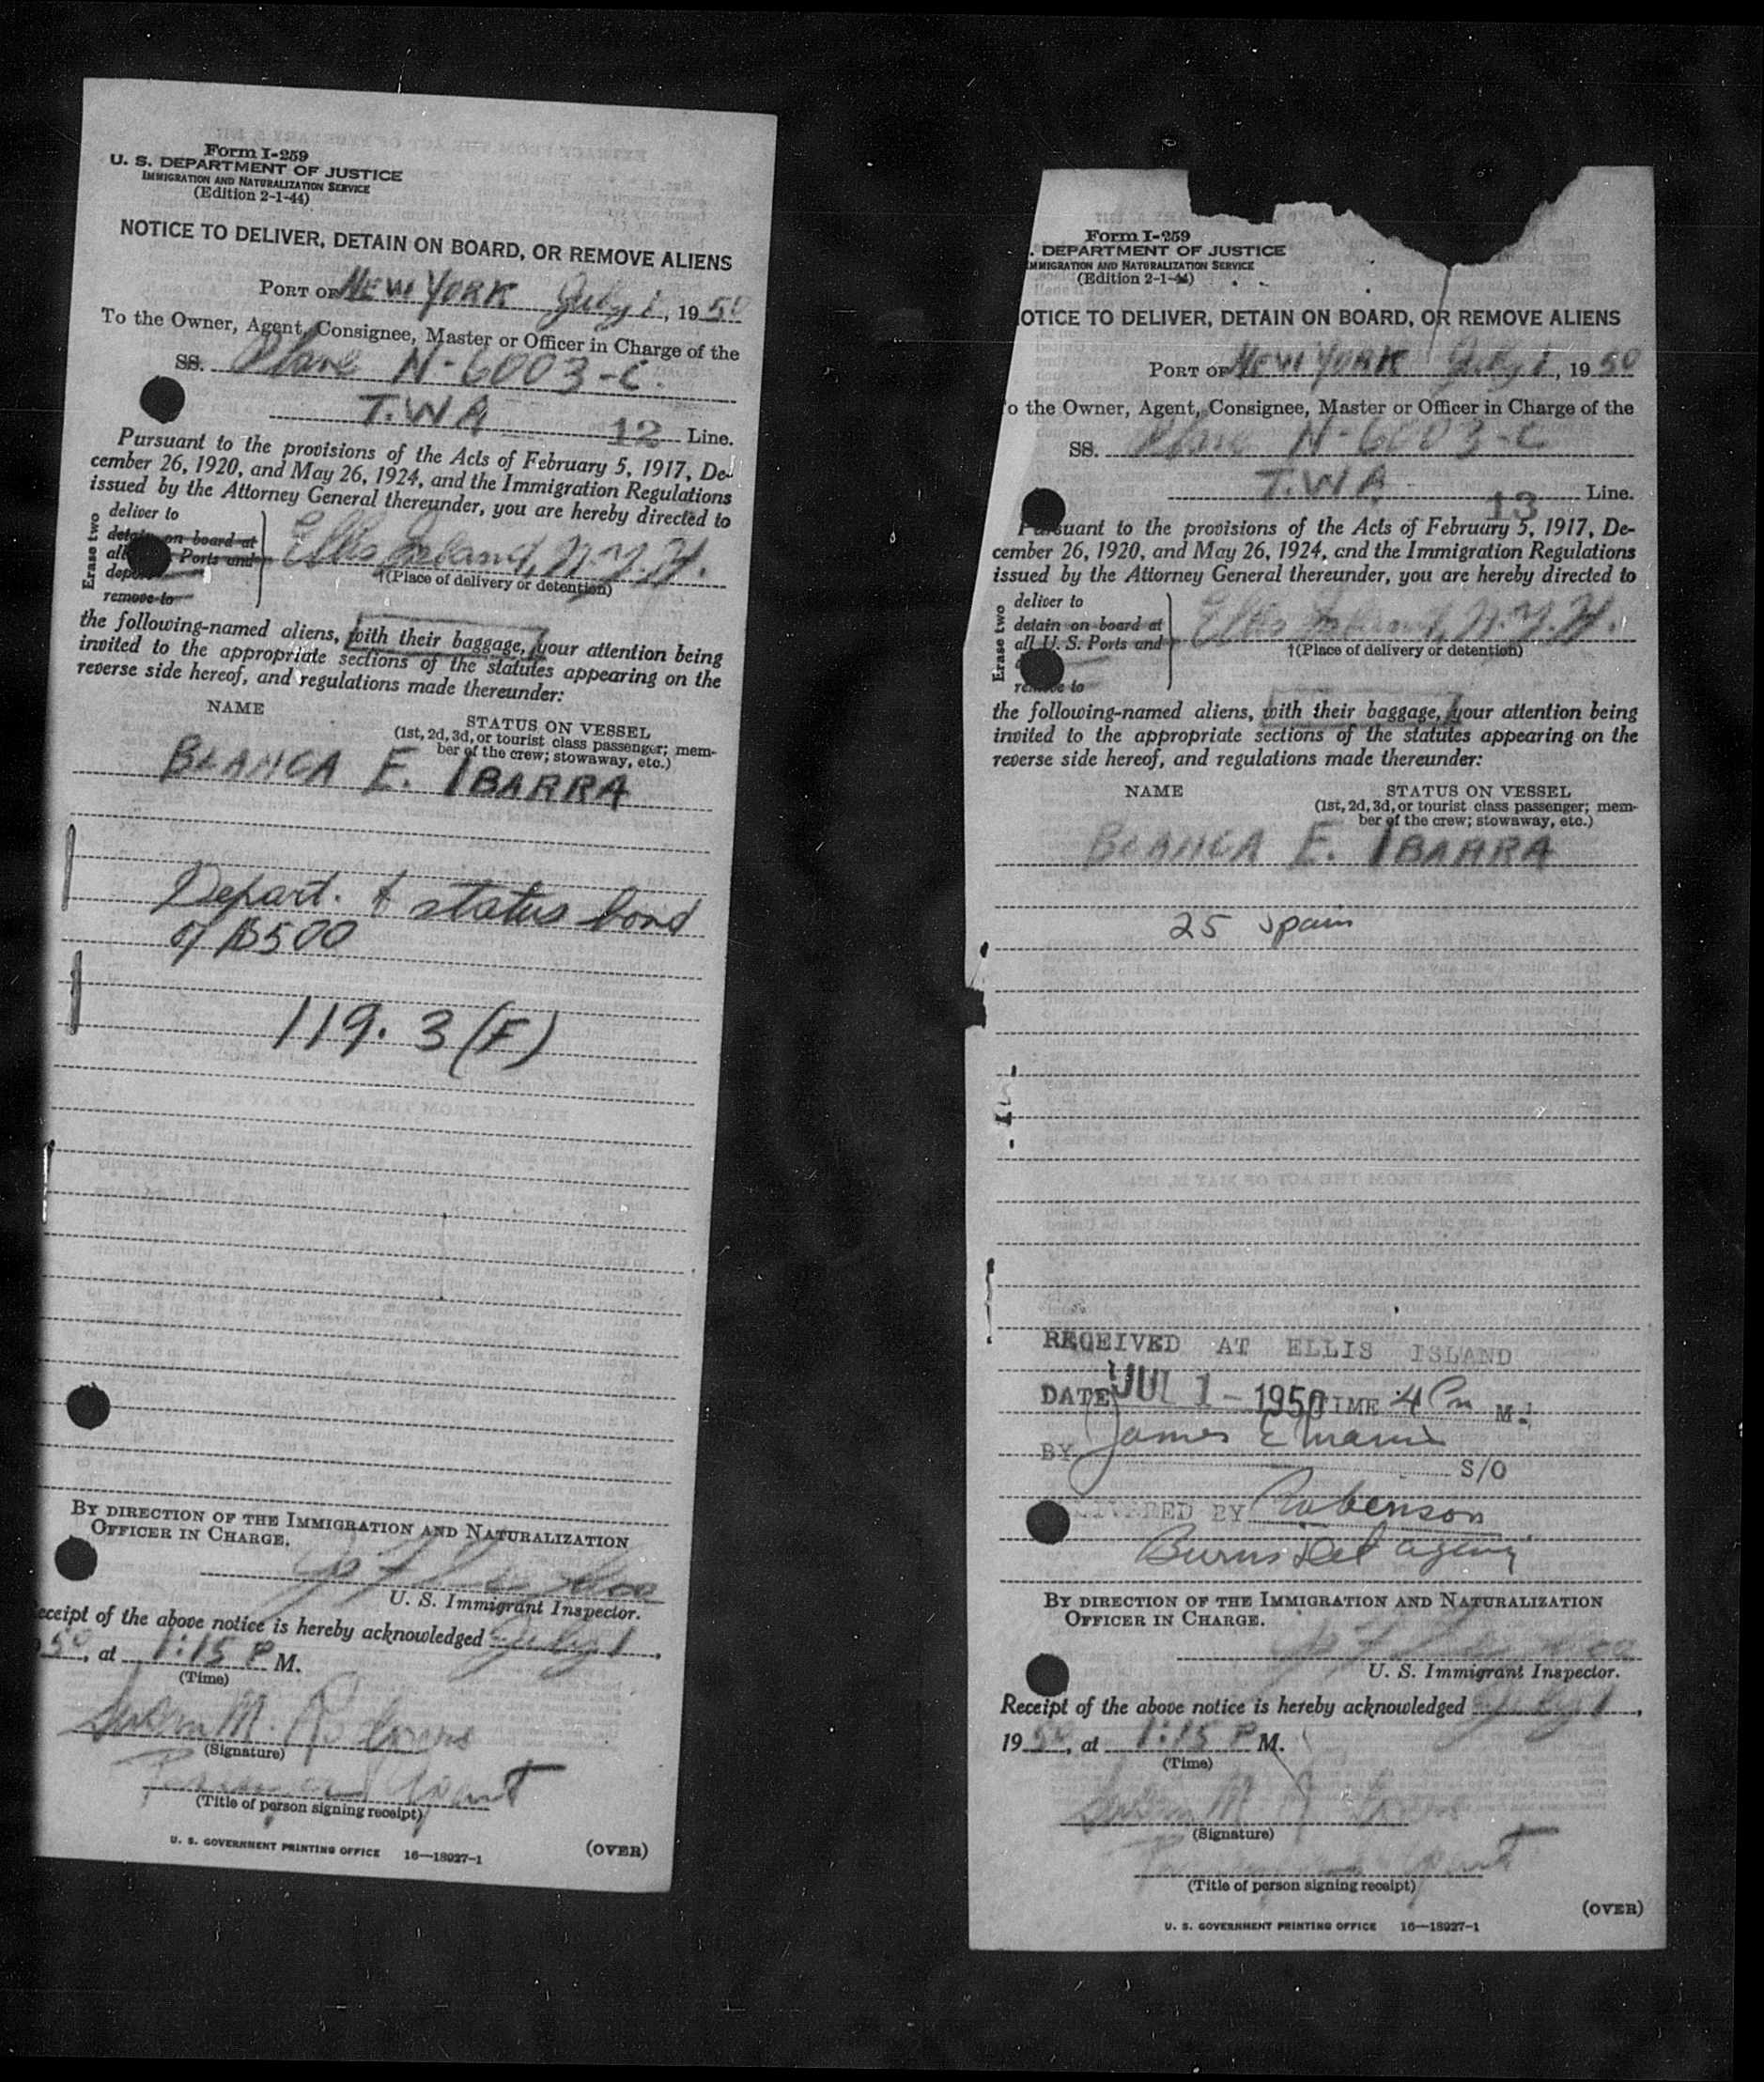 Form I-259
U. S. DEPARTMENT OF JUSTICE
IMMIGRATION AND NATURALIZATION SERVICE
(Edition 2-1-44)
NOTICE TO DELIVER, DETAIN ON BOARD, OR REMOVE ALIENS
PORT OF NEW YORK July 1, 1950
To the Owner, Agent, Consignee, Master or Officer in Charge of the
SS. Plane N-6003-C.
T.W A 12 Line.
Pursuant to the provisions of the Acts of February 5, 1917, De-
cember 26, 1920, and May 26, 1924, and the Immigration Regulations
issued by the Attorney General thereunder, you are hereby directed to
Erase two
deliver to
detain on board at
all Ports and
remove to
Ellis Island, N.Y.H.
†(Place of delivery or detention)
the following-named aliens, with their baggage, your attention being
invited to the appropriate sections of the statutes appearing on the
reverse side hereof, and regulations made thereunder:
NAME
STATUS ON VESSEL
(1st, 2d, 3d, or tourist class passenger; mem-
ber of the crew; stowaway, etc.)
BLANCA E. IBARRA
Depart. & status bond
of $500
119. 3 (F)
BY DIRECTION OF THE IMMIGRATION AND NATURALIZATION
OFFICER IN CHARGE.
U. S. Immigrant Inspector.
eceipt of the above notice is hereby acknowledged July 1,
50, at 1:15 P M.
(Time)
(Signature)
(Title of person signing receipt)
U. S. GOVERNMENT PRINTING OFFICE 16—18927-1
(OVER)
Form I-259
. DEPARTMENT OF JUSTICE
MMIGRATION AND NATURALIZATION SERVICE
(Edition 2-1-44)
OTICE TO DELIVER, DETAIN ON BOARD, OR REMOVE ALIENS
PORT OF NEW YORK July 1, 1950
o the Owner, Agent, Consignee, Master or Officer in Charge of the
SS. Plane N-6003-C
T.W A 13 Line.
Pursuant to the provisions of the Acts of February 5, 1917, De-
cember 26, 1920, and May 26, 1924, and the Immigration Regulations
issued by the Attorney General thereunder, you are hereby directed to
Erase two
deliver to
detain on board at
all U. S. Ports and
remove to
Ellis Island, N.Y.H.
†(Place of delivery or detention)
the following-named aliens, with their baggage, your attention being
invited to the appropriate sections of the statutes appearing on the
reverse side hereof, and regulations made thereunder:
NAME
STATUS ON VESSEL
(1st, 2d, 3d, or tourist class passenger; mem-
ber of the crew; stowaway, etc.)
BLANCA E. IBARRA
25 Spain
RECEIVED AT ELLIS ISLAND
DATE JUL 1 - 1950 TIME 4 P M.
BY James E
S/O
BY Robenson
Burns Det agency
BY DIRECTION OF THE IMMIGRATION AND NATURALIZATION
OFFICER IN CHARGE.
U. S. Immigrant Inspector.
Receipt of the above notice is hereby acknowledged July 1,
1950, at 1:15 P M.
(Time)
(Signature)
(Title of person signing receipt)
(OVER)
U. S. GOVERNMENT PRINTING OFFICE 16—18927-1